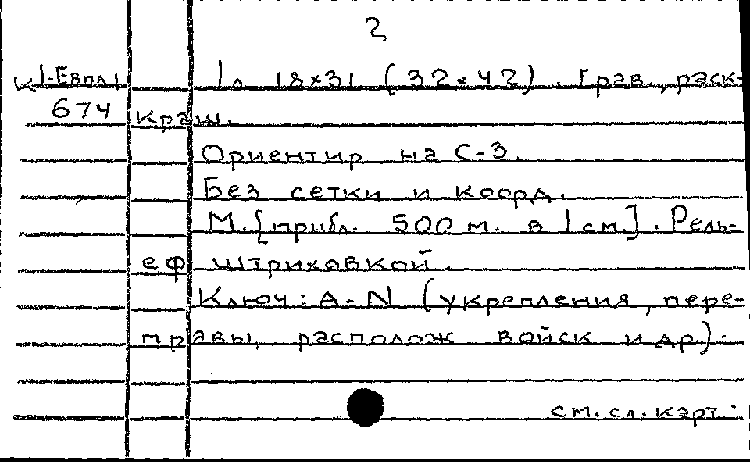 2
К 1-Евпа 1 1л 18×31 (32×42). Грав., раск-
674 краш.
Ориентир на С-З.
Без сетки и коорд.
М. [прибл. 500 м. в 1 см.]. Рель-
еф штриховкой.
Ключ: A-N (укрепления, пере-
правы, располож войск и др).
см. сл. карт.